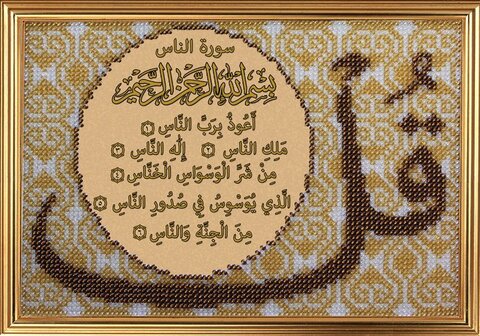 سورة الناس
بسم الله الرحمن الرحيم
قل
أَعُوذُ بِرَبِّ النَّاسِ ١
مَلِكِ النَّاسِ ٢ إِلَٰهِ النَّاسِ ٣
مِنْ شَرِّ الْوَسْوَاسِ الْخَنَّاسِ ٤
الَّذِي يُوَسْوِسُ فِي صُدُورِ النَّاسِ ٥
مِنَ الْجِنَّةِ وَالنَّاسِ ٦